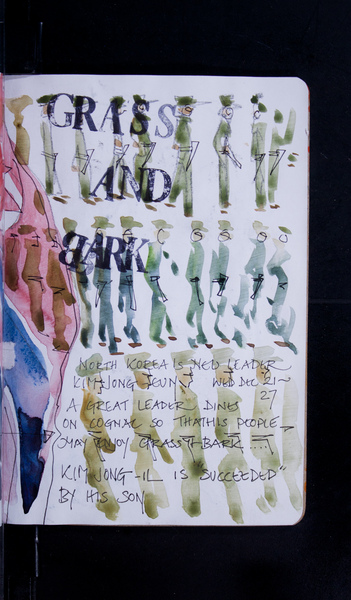 GRASS
AND
BARK
NORTH KOREA'S NEW LEADER
KIM JONG EUN WED DEC 21~
27
A GREAT LEADER DINES
ON COGNAC SO THAT HIS PEOPLE
MAY ENJOY GRASS + BARK ....
KIM JONG-IL IS SUCCEEDED"
BY HIS SON